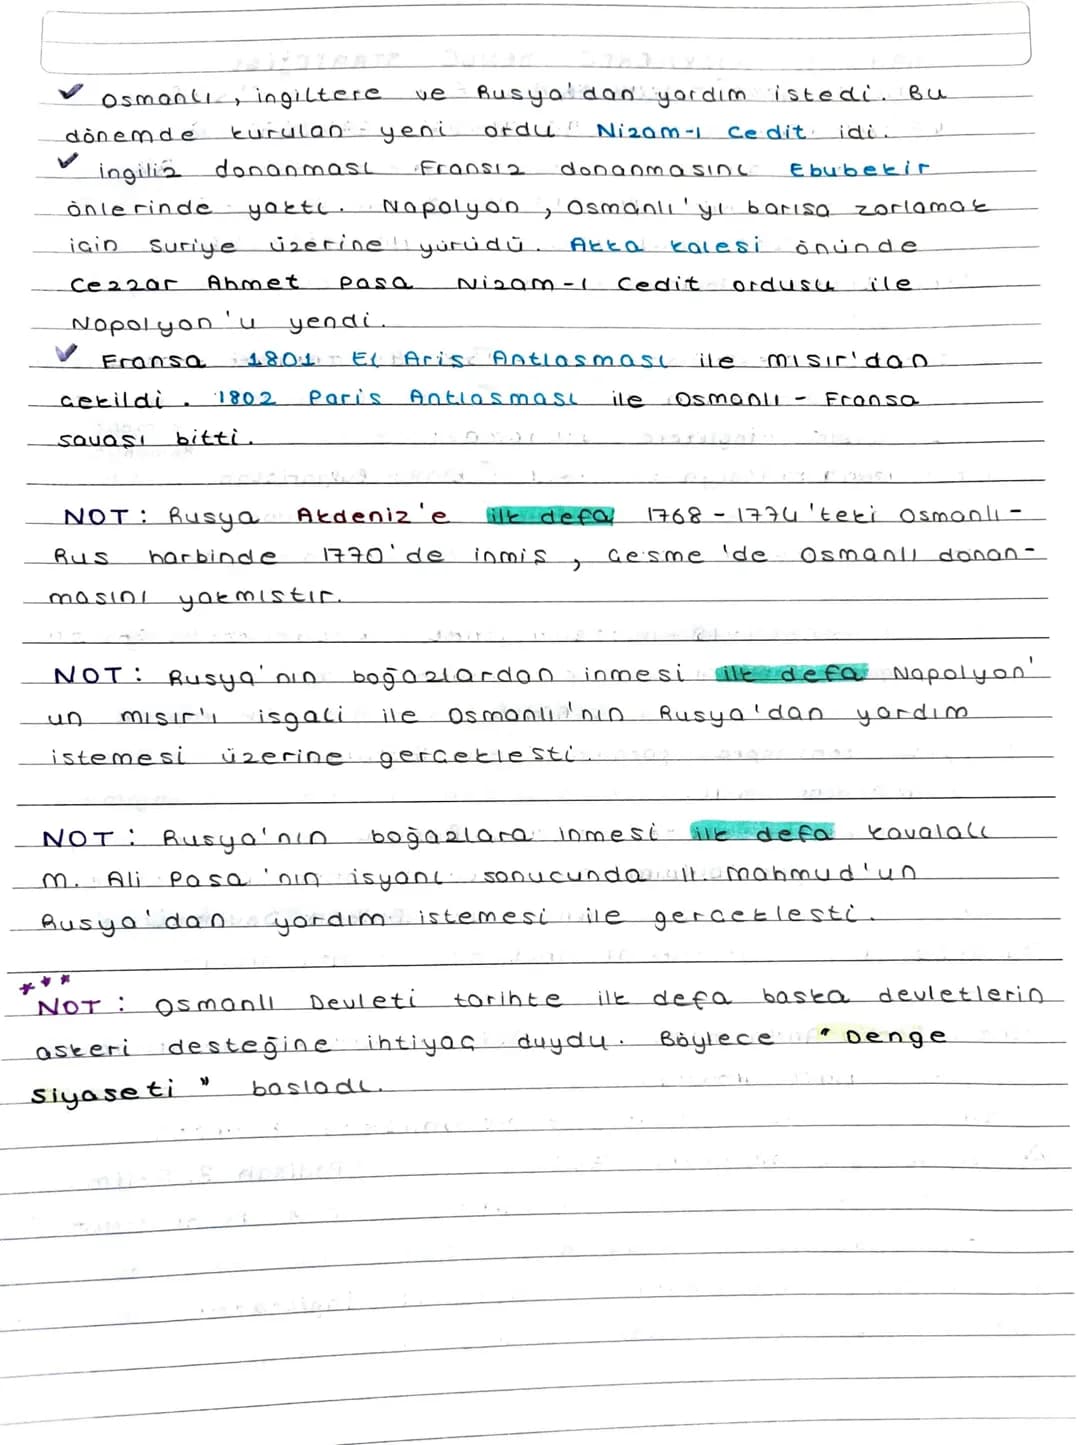 ✓ Osmanlı, ingiltere ve Rusya'dan yardım istedi. Bu
dönemde kurulan yeni ordu Nizam-ı Cedit idi.
✓ ingiliz donanması Fransız donanmasını Ebubekir
önlerinde yaktı. Napolyon, Osmanlı'yı barısa zorlamak
icin Suriye üzerine yürüdü. Akka kalesi önünde
Cezzar Ahmet pasa Nizam-ı Cedit ordusu ile
Napolyon'u yendi.
✓ Fransa 1801 El Aris Antlasması ile mısır'dan
cekildi. 1802 Paris Antlasması ile Osmanlı - Fransa
savası bitti.
NOT: Rusya Akdeniz'e ilk defa 1768 - 1774'teki Osmanlı -
Rus harbinde 1770'de inmis, Cesme'de Osmanlı donan-
masını yakmıstır.
NOT: Rusya'nın boğazlardan inmesi ilk defa Napolyon'
un mısır'ı isgali ile Osmanlı'nın Rusya'dan yardım
istemesi üzerine gerceklesti.
NOT: Rusya'nın boğazlara inmesi ilk defa kavalalı
m. Ali Pasa'nın isyanı sonucunda II. mahmud'un
Rusya'dan yardım istemesi ile gerceklesti.
***
NOT: Osmanlı Devleti tarihte ilk defa baska devletlerin
askeri desteğine ihtiyaç duydu. Böylece "Denge
Siyaseti" basladı.